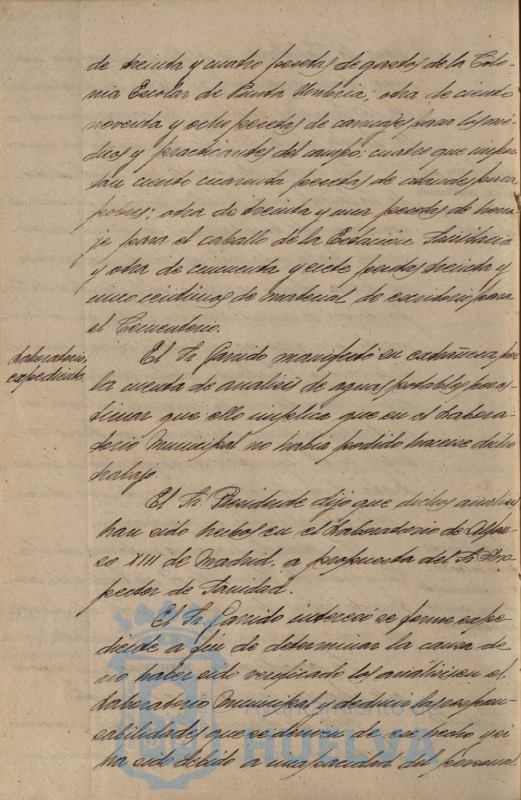 de treinta y cuatro pesetas de gastos de la Colo-
nia Escolar de Punta Umbria; otra de ciento
noventa y ocho pesetas de carruajes para los mé-
dicos y practicantes del campo; cuatro que impor-
tan ciento cuarenta pesetas de ataudes para
pobres; otra de treinta y una pesetas de herra-
je para el caballo de la Estación Sanitaria
y otra de cincuenta y siete pesetas treinta y
cinco centimos de material de escritorio para
el Cementerio.
Laboratorio,
expediente.
El Sr. Garrido manifestó su extrañeza por
la cuenta de analisis de aguas potables por es-
timar que ello implica que en el Labora-
torio Municipal no habia podido hacerse dicho
trabajo.
El Sr. Presidente dijo que dichos analisis
han sido hechos en el Laboratorio de Alfon-
so XIII de Madrid, a propuesta del Sr. Ins-
pector de Sanidad.
El Sr. Garrido interesó se forme expe-
diente a fin de determinar la causa de
no haber sido verificado los análisis en el
Laboratorio Municipal y deducir las respon-
sabilidades que se deriven de ese hecho y si
ha sido debido a incapacidad del personal
HUELVA